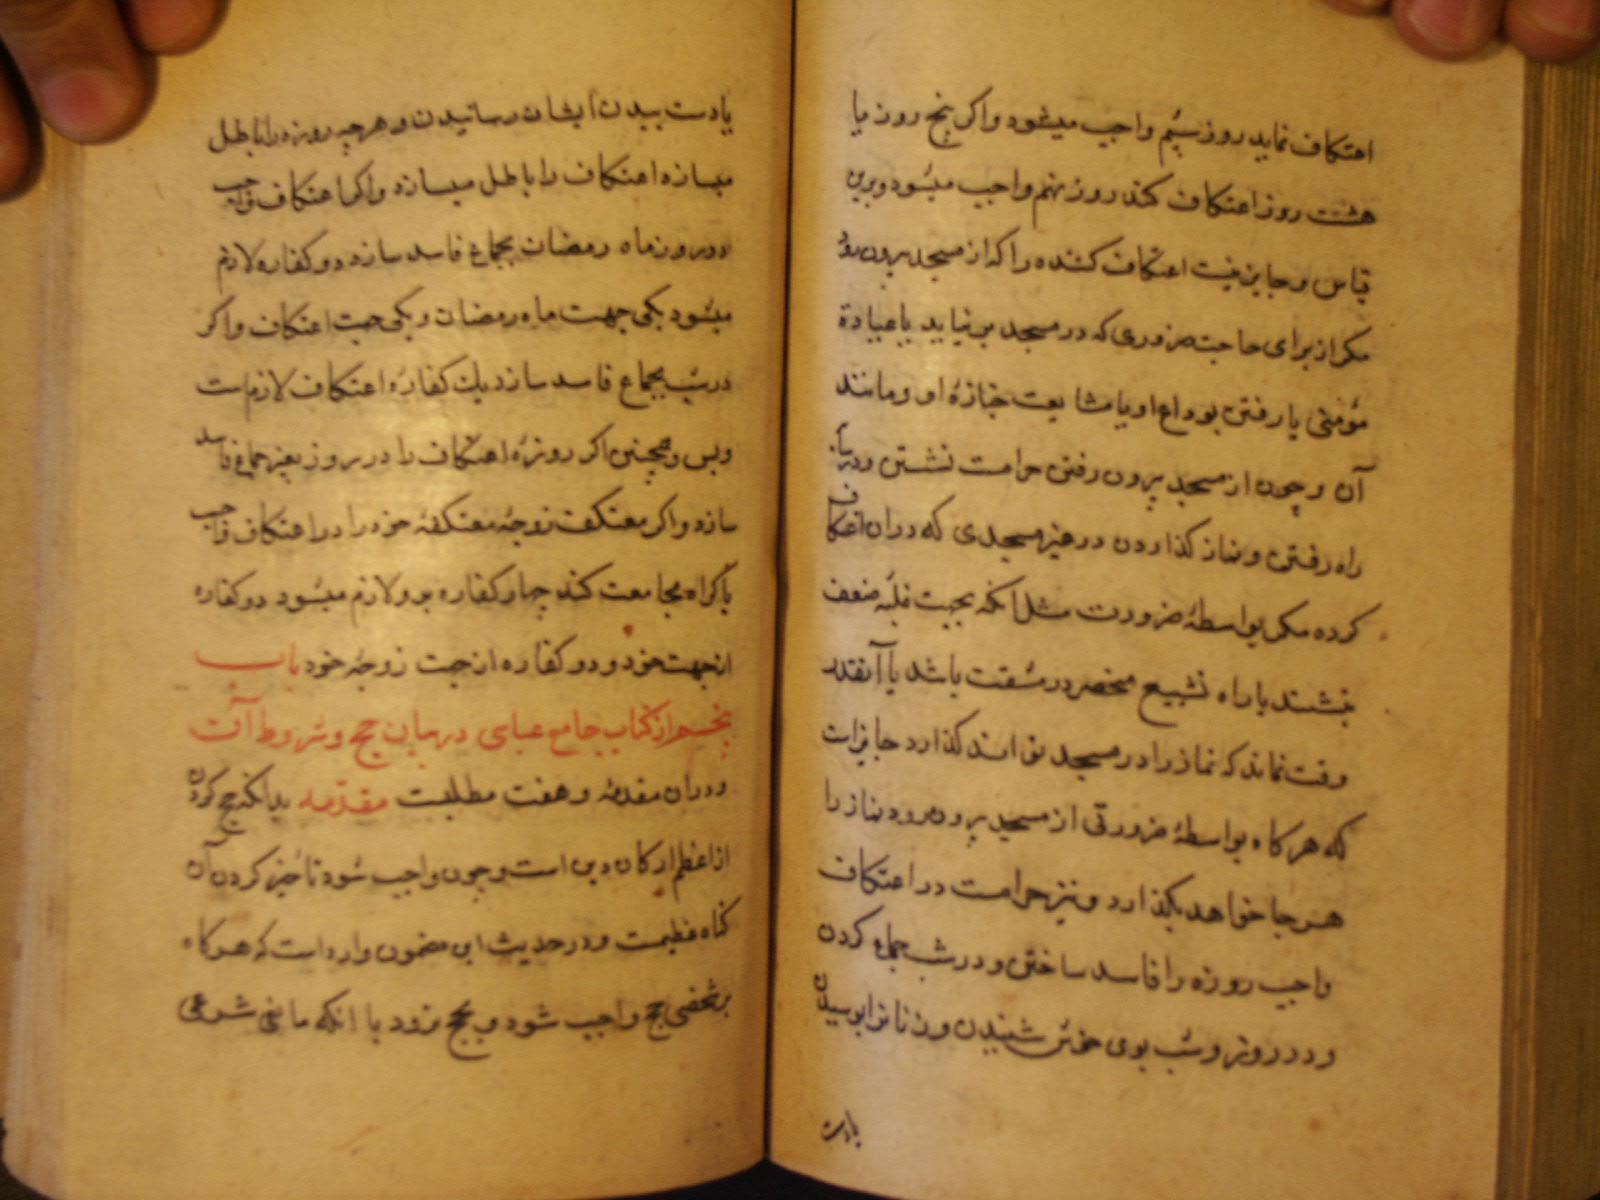 اعتکاف نماید روز سیُم واجب میشود واکر پنج روز یا
هشت روز اعتکاف کند روز نهم واجب میشود و برین
قیاس و جایز نیست اعتکاف کننده را که از مسجد بیرون رود
مکر از برای حاجت ضروری که در مسجد بر نیاید یا عیادة
مؤمنی یا رفتن بوداع او یا مشایعت جنازهٔ او و مانند
آن و چون از مسجد بیرون رفتن حرامست نشستن و در
راه رفتن و نماز کذاردن در غیر مسجدی که دران اعتکاف
کرده مکر بواسطهٔ ضرورت مثل انکه بجهت غلبهٔ ضعف
بنشیند یا راه تشییع منحصر در مشقت باشد یا آنقدر
وقت نماند که نماز را در مسجد تواند کذارد جایزاست
که هر کاه بواسطهٔ ضرورتی از مسجد بیرون رود نماز را
هر جا خواهد بکذارد و نیز حرامست در اعتکاف
واجب روزه را فاسد ساختن و در شب جماع کردن
و در روز و شب بوی خوش شنیدن و زنانرا بوسیدن
یا دست
یا دست ببدن ایشان رسانیدن و هر چه روزه را باطل
میسازد اعتکاف را باطل میسازد واکر اعتکاف واجب
در روز ماه رمضان بجماع فاسد سازد دو کفاره لازم
میشود یکی جهت ماه رمضان و یکی جهت اعتکاف واکر
در شب بجماع فاسد سازد یك کفارهٔ اعتکاف لازم است
و بس و همچنین اکر روزهٔ اعتکاف را در روز بغیر جماع فاسد
سازد واکر معتکف زوجهٔ معتکفهٔ خود را در اعتکاف واجب
باکراه مجامعت کند چهار کفاره برو لازم میشود دو کفاره
از جهت خود و دو کفاره از جهت زوجهٔ خود باب
پنجم از کتاب جامع عباسی در بیان حج و شروط آنست
و دران مقدمه و هفت مطلبست مقدّمه بدانکه حج کردن
از اعظم ارکان دین است و چون واجب شود تاخیر کردن آن
کناه عظیمست و در حدیث این مضمون وارد است که هر کاه
بر شخصی حج واجب شود و بحج نرود با انکه مانعی شرعی